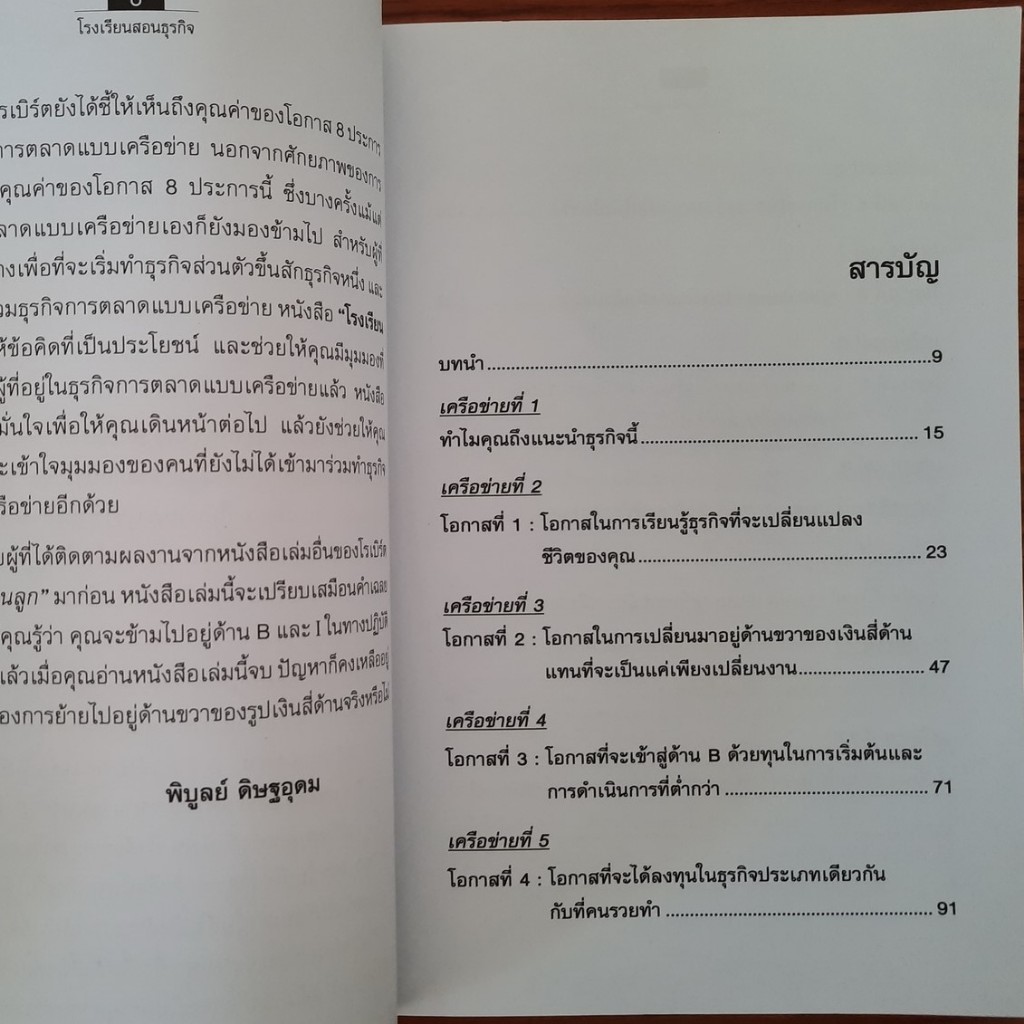 โรงเรียนสอนธุรกิจ
รเบิร์ตยังได้ชี้ให้เห็นถึงคุณค่าของโอกาส 8 ประการ
การตลาดแบบเครือข่าย นอกจากศักยภาพของการ
คุณค่าของโอกาส 8 ประการนี้ ซึ่งบางครั้งแม้แต่
ลาดแบบเครือข่ายเองก็ยังมองข้ามไป สำหรับผู้ที่
างเพื่อที่จะเริ่มทำธุรกิจส่วนตัวขึ้นสักธุรกิจหนึ่ง และ
วมธุรกิจการตลาดแบบเครือข่าย หนังสือ “โรงเรียน
ห้ข้อคิดที่เป็นประโยชน์ และช่วยให้คุณมีมุมมองที่
ผู้ที่อยู่ในธุรกิจการตลาดแบบเครือข่ายแล้ว หนังสือ
มั่นใจเพื่อให้คุณเดินหน้าต่อไป แล้วยังช่วยให้คุณ
ะเข้าใจมุมมองของคนที่ยังไม่ได้เข้ามาร่วมทำธุรกิจ
รือข่ายอีกด้วย
บผู้ที่ได้ติดตามผลงานจากหนังสือเล่มอื่นของโรเบิร์ต
นลูก” มาก่อน หนังสือเล่มนี้จะเปรียบเสมือนคำเฉลย
คุณรู้ว่า คุณจะข้ามไปอยู่ด้าน B และ I ในทางปฏิบัติ
ล้วเมื่อคุณอ่านหนังสือเล่มนี้จบ ปัญหาก็คงเหลืออยู่
องการย้ายไปอยู่ด้านขวาของรูปเงินสี่ด้านจริงหรือไม่
พิบูลย์ ดิษฐอุดม
สารบัญ
บทนำ ........ 9
เครือข่ายที่ 1
ทำไมคุณถึงแนะนำธุรกิจนี้ ........ 15
เครือข่ายที่ 2
โอกาสที่ 1 : โอกาสในการเรียนรู้ธุรกิจที่จะเปลี่ยนแปลง
ชีวิตของคุณ ........ 23
เครือข่ายที่ 3
โอกาสที่ 2 : โอกาสในการเปลี่ยนมาอยู่ด้านขวาของเงินสี่ด้าน
แทนที่จะเป็นแค่เพียงเปลี่ยนงาน ........ 47
เครือข่ายที่ 4
โอกาสที่ 3 : โอกาสที่จะเข้าสู่ด้าน B ด้วยทุนในการเริ่มต้นและ
การดำเนินการที่ต่ำกว่า ........ 71
เครือข่ายที่ 5
โอกาสที่ 4 : โอกาสที่จะได้ลงทุนในธุรกิจประเภทเดียวกัน
กับที่คนรวยทำ ........ 91